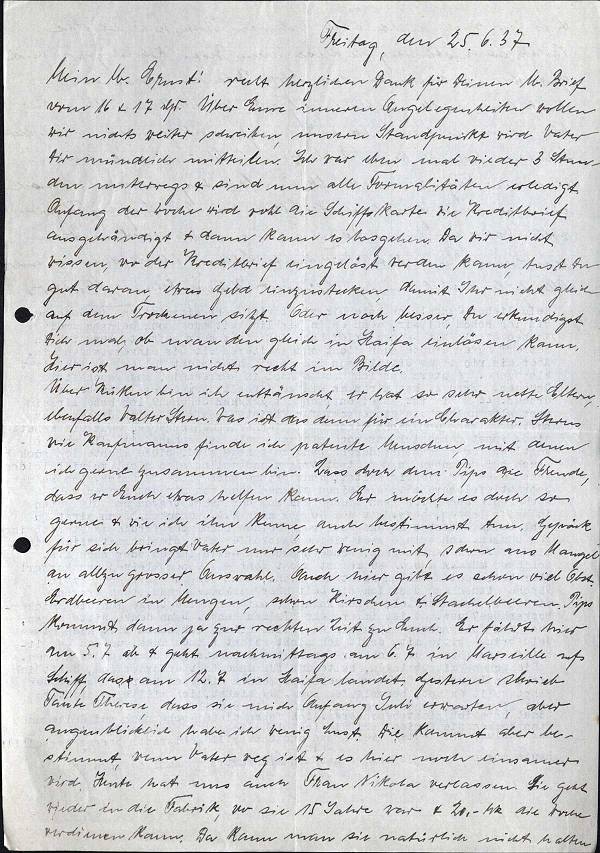 Freitag, den 25.6.37
Mein lb. Ernst! recht herzlichen Dank für Deinen lb. Brief
vom 16 & 17 ds. Über Eure inneren Angelegenheiten wollen
wir nichts weiter schreiben, unsern Standpunkt wird Vater
Dir mündlich mitteilen. Ich war eben mal wieder 3 Stun-
den unterwegs & sind nun alle Formalitäten erledigt
Anfang der Woche wird wohl die Schiffskarte die Kreditbrief
ausgehändigt & dann kann es losgehen. Da wir nicht
wissen, wo der Kreditbrief eingelöst werden kann, tust Du
gut daran, etwas Geld einzustecken, damit Ihr nicht gleich
auf dem Trockenen sitzt. Oder noch besser, Du erkundigst
Dich mal, ob man den gleich in Haifa einlösen kann.
Hier ist man nicht recht im Bilde.
Über bin ich enttäuscht, er hat so sehr nette Eltern,
ebenfalls Walter Stern. Was ist das denn für ein Charakter. Sterns
wie Kaufmanns finde ich patente Menschen, mit denen
ich gerne zusammen bin. Lass doch dem Pips die Freude,
dass er Euch etwas helfen kann. Er möchte es doch so
gerne & wie ich ihn kenne, auch bestimmt tun. Gepäck
für sich bringt Vater nur sehr wenig mit, schon aus Mangel
an allzu grosser Auswahl. Auch hier gibt es schon viel Obst.
Erdbeeren in Mengen, schon Kirschen & Stachelbeeren. Pips
kommt dann ja zur rechten Zeit zu Euch. Er fährt hier
am 5.7 ab & geht nachmittags am 6.7 in Marseille aufs
Schiff, das am 12.7 in Haifa landet. Gestern schrieb
Tante Therese, dass sie mich Anfang Juli erwarten, aber
augenblicklich habe ich wenig Lust. Die kommt aber be-
stimmt, wenn Vater weg ist & es hier noch einsamer
wird. Heute hat uns auch Frau Nikola verlassen. Sie geht
wieder in die Fabrik, wo sie 15 Jahre war & 20,- Mk die Woche
verdienen kann. Da kann man sie natürlich nicht halten